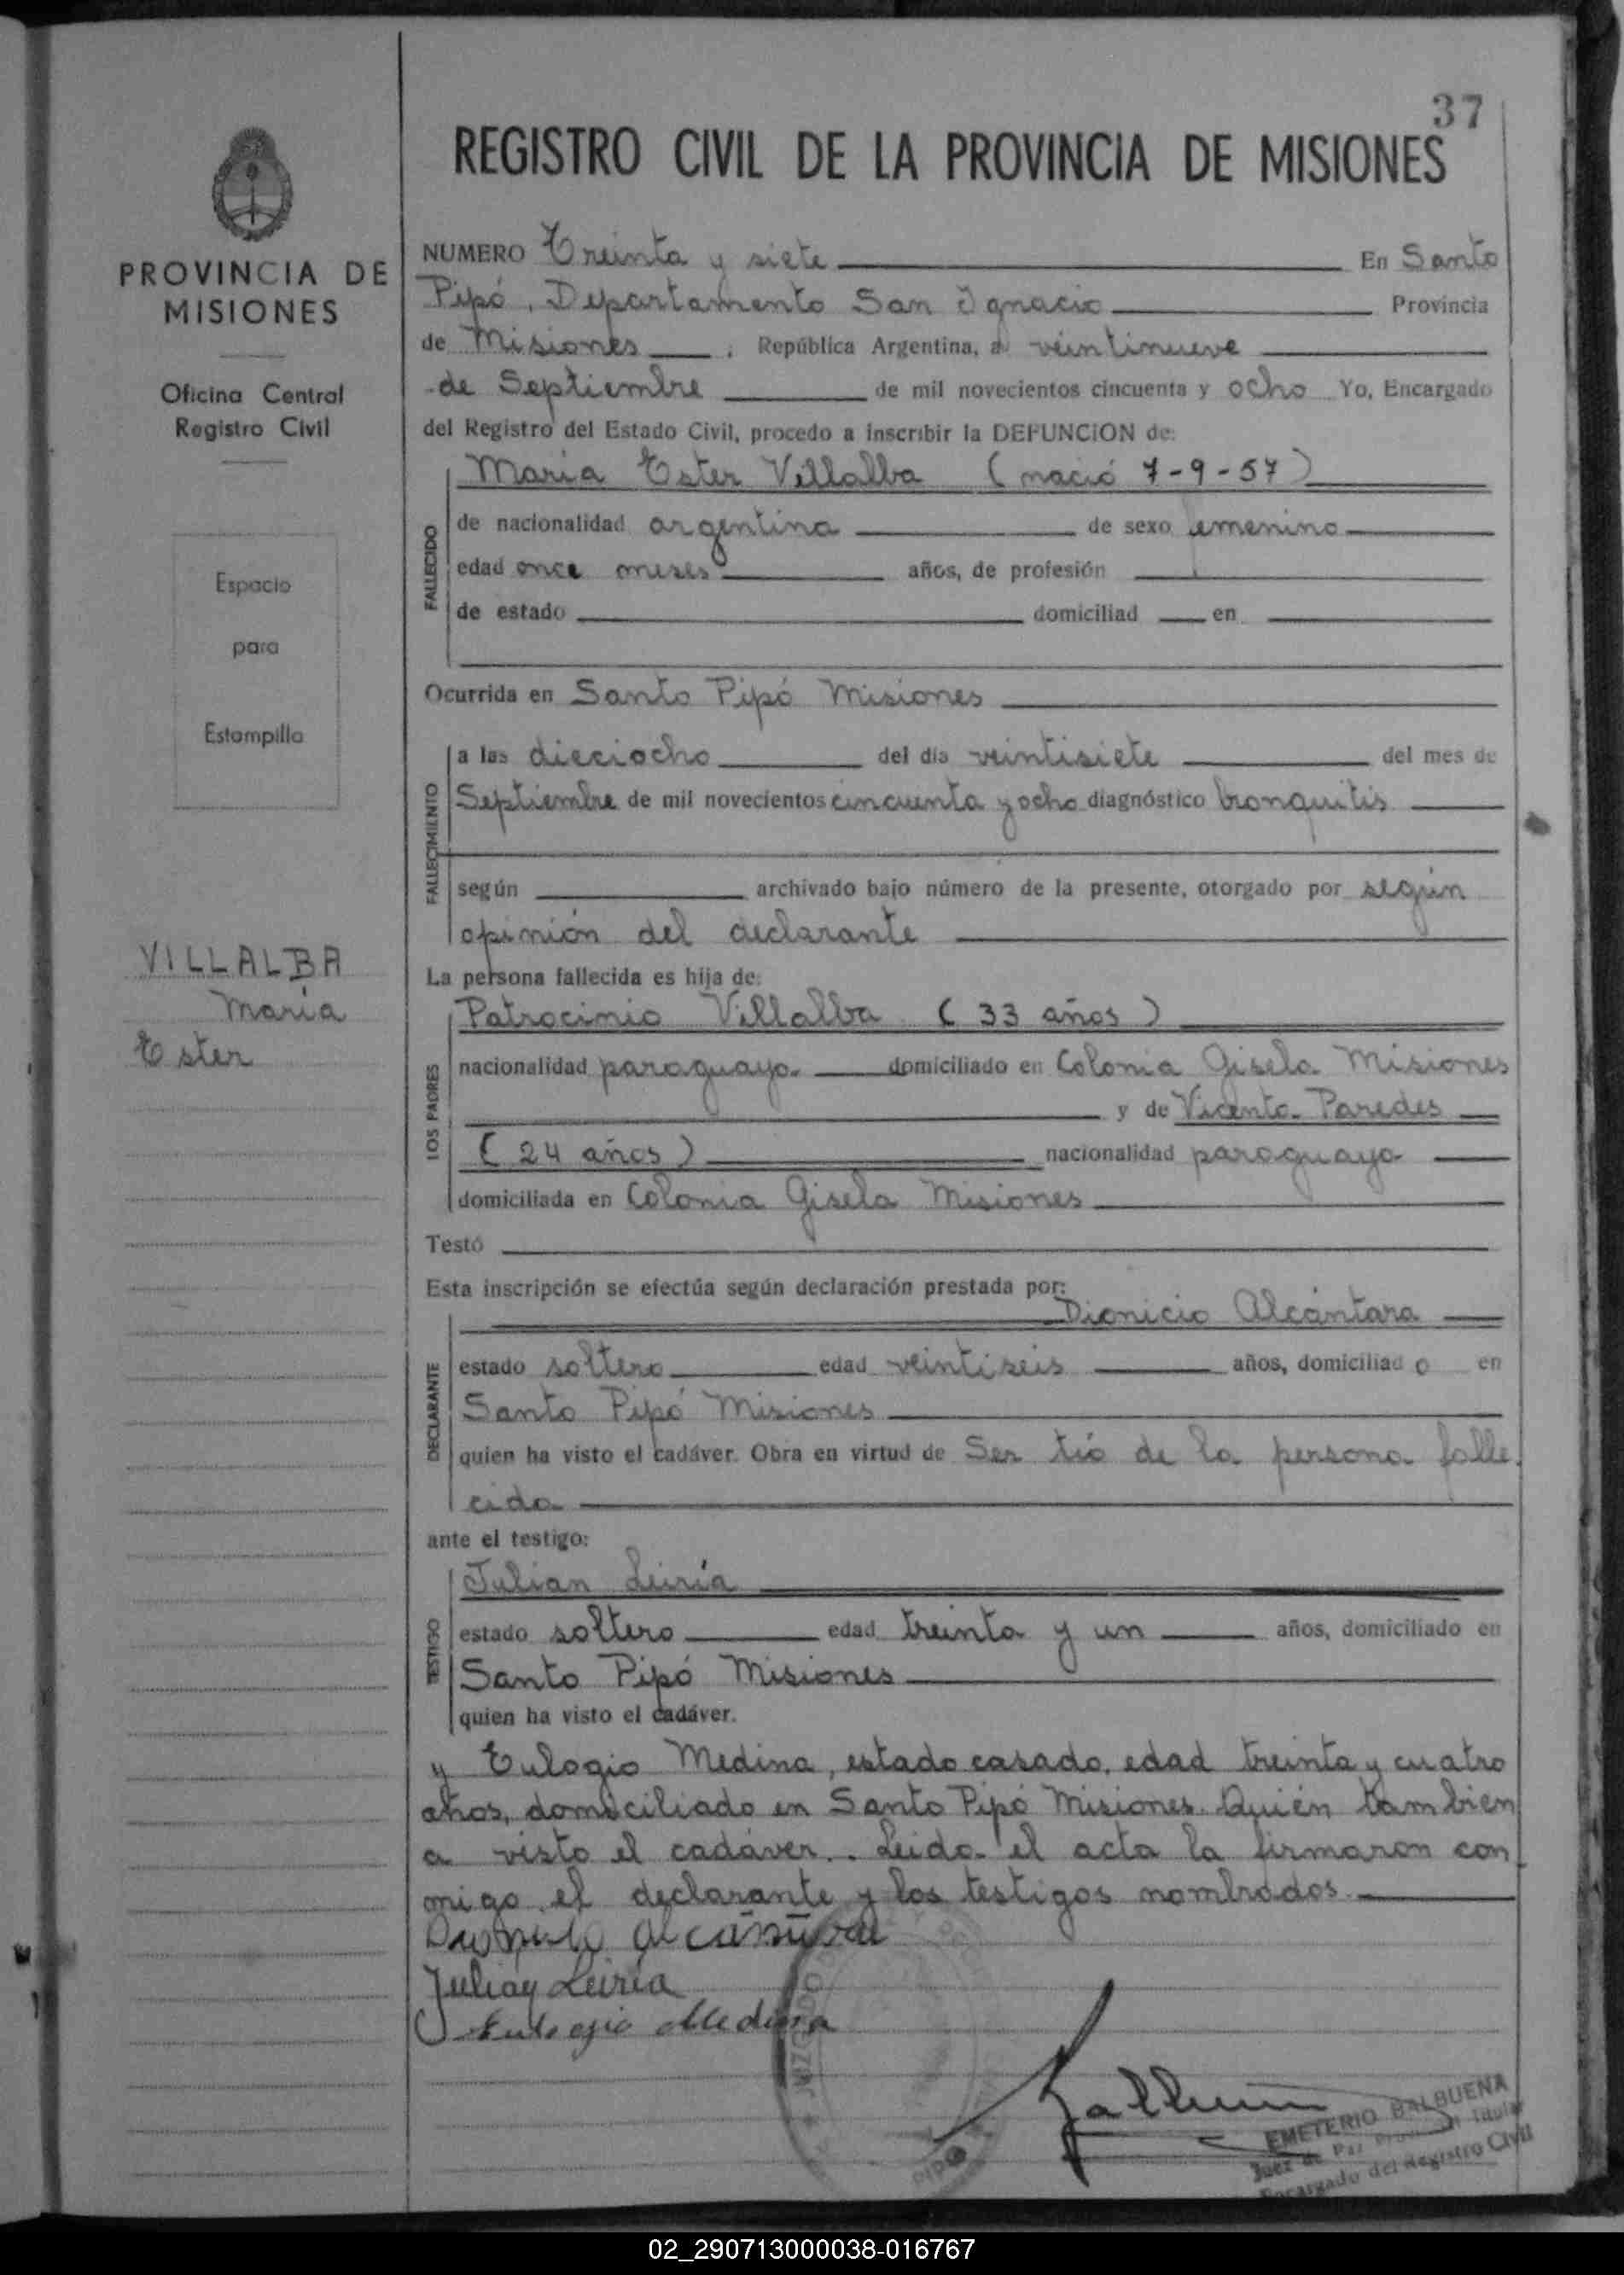 37
REGISTRO CIVIL DE LA PROVINCIA DE MISIONES
PROVINCIA DE
MISIONES
Oficina Central
Registro Civil
Espacio
para
Estampilla
VILLALBA
María
Ester
NUMERO Treinta y siete En Santo
Pipó, Departamento San Ignacio Provincia
de Misiones , República Argentina, a veintinueve
de Septiembre de mil novecientos cincuenta y ocho Yo, Encargado
del Registro del Estado Civil, procedo a inscribir la DEFUNCION de:
FALLECIDO
María Ester Villalba (nació 7-9-57)
de nacionalidad argentina de sexo femenino
edad once meses años, de profesión
de estado domiciliad en
Ocurrida en Santo Pipó Misiones
FALLECIMIENTO
a las dieciocho del día veintisiete del mes de
Septiembre de mil novecientos cincuenta y ocho diagnóstico bronquitis
según archivado bajo número de la presente, otorgado por según
opinión del declarante
La persona fallecida es hija de:
LOS PADRES
Patrocinio Villalba (33 años)
nacionalidad paraguaya domiciliado en Colonia Gisela Misiones
y de Vicenta Paredes
(24 años) nacionalidad paraguaya
domiciliada en Colonia Gisela Misiones
Testó
Esta inscripción se efectúa según declaración prestada por:
DECLARANTE
Dionicio Alcántara
estado soltero edad veintiseis años, domiciliado en
Santo Pipó Misiones
quien ha visto el cadáver. Obra en virtud de Ser tió de la persona falle
cida
ante el testigo:
TESTIGO
Julian Leiría
estado soltero edad treinta y un años, domiciliado en
Santo Pipó Misiones
quien ha visto el cadáver.
y Eulogio Medina, estado casado, edad treinta y cuatro
años, domiciliado en Santo Pipó Misiones. Quién tambien
a visto el cadáver.. Leida el acta la firmaron con
migo, el declarante y los testigos nombrados.
Alcántara
Julian Leiría
Eulogio Medina
JUZGADO
PIPO
EMETERIO BALBUENA
Juez de Paz Titular
Encargado del Registro Civil
02_290713000038-016767